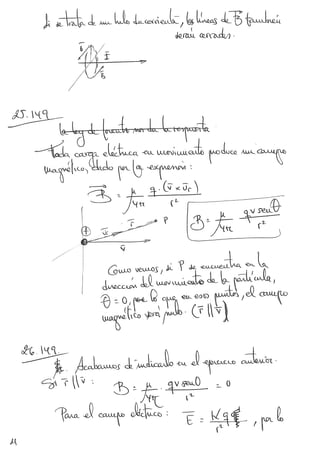 Si se trata de un hilo de corriente, las líneas de B también
serán cerradas.
B
I
B
25.149
la ley de Lorentz nos da la respuesta
Toda carga eléctrica en movimiento produce un campo
magnético, dado por la expresión:
B = μ/4π · q·(v × ur)/r²
r
P
B = μ/4π q v senθ/r²
⊕
ur
θ
v
Como vemos, si P se encuentra en la
dirección del movimiento de la partícula,
θ = 0, por lo que en esos puntos, el campo
magnético será nulo. (r ∥ v)
26.149
Acabamos de indicarlo en el ejercicio anterior.
Si r ∥ v : B = μ/4π · q v sen0/r² = 0
Para el campo eléctrico: E = K q /r² , por lo